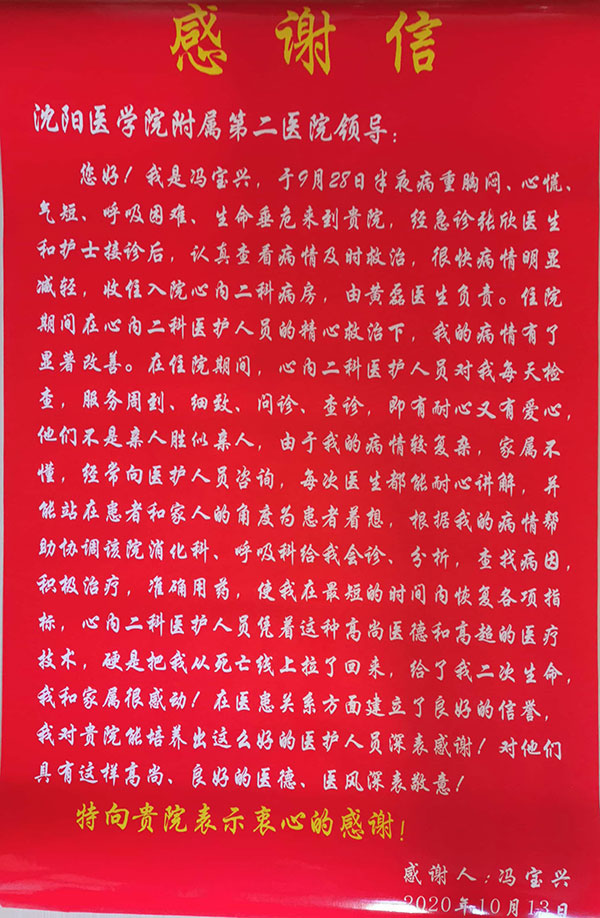 感谢信
沈阳医学院附属第二医院领导：
您好！我是冯宝兴，于9月28日半夜病重胸闷、心慌、
气短、呼吸困难、生命垂危来到贵院，经急诊张欣医生
和护士接诊后，认真查看病情及时救治，很快病情明显
减轻，收住入院心内二科病房，由黄磊医生负责。住院
期间在心内二科医护人员的精心救治下，我的病情有了
显著改善。在住院期间，心内二科医护人员对我每天检
查，服务周到、细致、问诊、查诊，即有耐心又有爱心，
他们不是亲人胜似亲人，由于我的病情较复杂，家属不
懂，经常向医护人员咨询，每次医生都能耐心讲解，并
能站在患者和家人的角度为患者着想，根据我的病情帮
助协调该院消化科、呼吸科给我会诊、分析，查找病因，
积极治疗，准确用药，使我在最短的时间内恢复各项指
标，心内二科医护人员凭着这种高尚医德和高超的医疗
技术，硬是把我从死亡线上拉了回来，给了我二次生命，
我和家属很感动！在医患关系方面建立了良好的信誉，
我对贵院能培养出这么好的医护人员深表感谢！对他们
具有这样高尚、良好的医德、医风深表敬意！
特向贵院表示衷心的感谢！
感谢人：冯宝兴
2020年10月13日